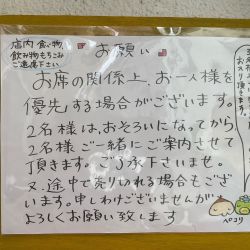 店内 食べ物
飲み物もちこみ
ご遠慮下さい
お願い
お席の関係上、お一人様を
優先する場合がございます。
2名様は、おそろいになってから
2名様ご一緒にご案内させて
頂きます。ご了承下さいませ。
又、途中で売り切れる場合もござ
います。申しわけございませんが、
よろしくお願い致します
ペコリ